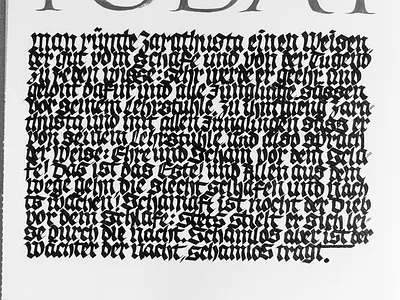 TODAY
man rümte Zarathusta einen Weisen
der gut vom Schlafe und von der Tugend
zu reden wisse: sehr werde er geehrt und
gelont dafür und alle Jünglinge sässen
vor seinem Lehrstuhle. Zu ihm ging Zara
thustra und mit allen Jünglingen sass er
vor seinem Lehrstuhle und also sprach
der Weise: Ehre und Scham vor dem Schla
fe! Das ist das Erste! und allen aus dem
wege gehn die slecht schlafen und nach
ts wachen! Schamhaft ist noch der Dieb
vor dem Schlafe: Stets stielt er sich lei
se durch die nacht. Schamlos aber ist der
wächter der nacht, schamlos trägt.